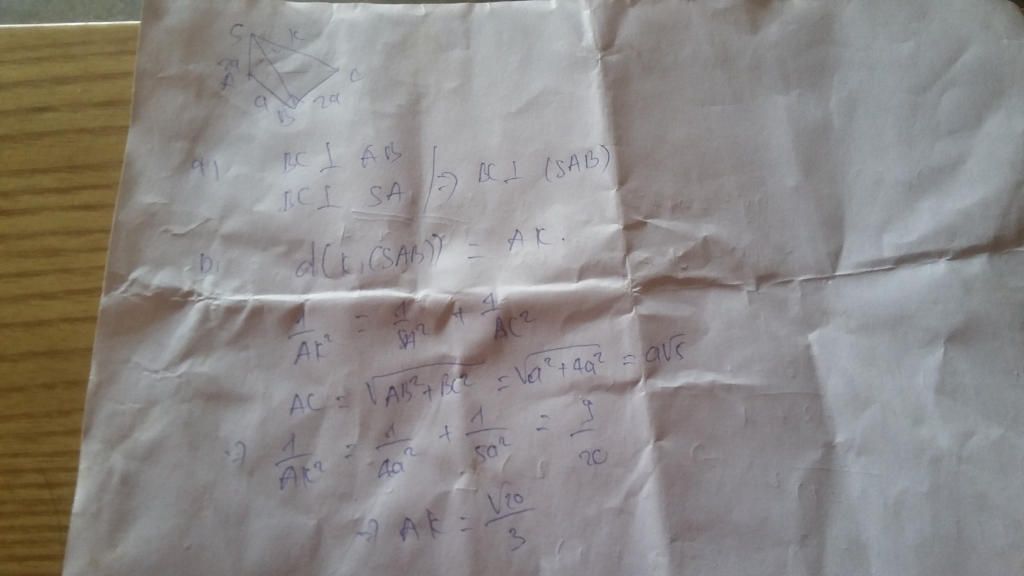 C K
2a
A C
a 2a
B
a, BC ⊥ AB
BC ⊥ SA } => BC ⊥ (SAB)
b, d(K,(SAB)) = AK.
1/AK² = 1/SA² + 1/AC²
AC = √AB²+BC² = √a²+4a² = a√5
=> 1/AK² = 1/4a² + 1/5a² = 9/20
=> AK = √20/3